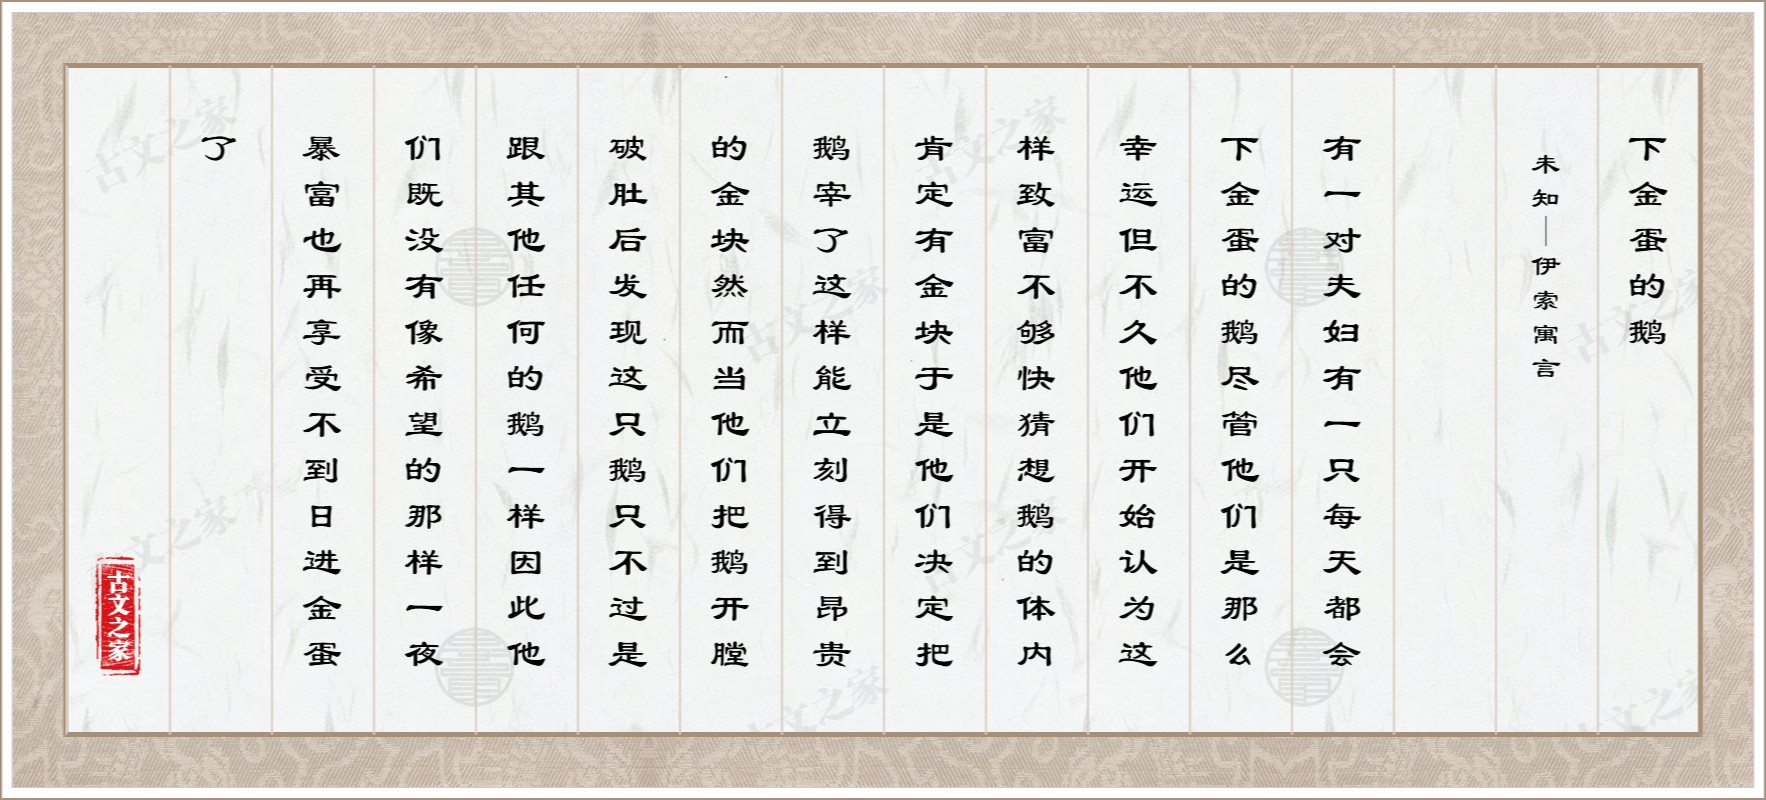 下金蛋的鹅
未知—伊索寓言
有一对夫妇有一只每天都会
下金蛋的鹅尽管他们是那么
幸运但不久他们开始认为这
样致富不够快猜想鹅的体内
肯定有金块于是他们决定把
鹅宰了这样能立刻得到昂贵
的金块然而当他们把鹅开膛
破肚后发现这只鹅只不过是
跟其他任何的鹅一样因此他
们既没有像希望的那样一夜
暴富也再享受不到日进金蛋
了
古文之家